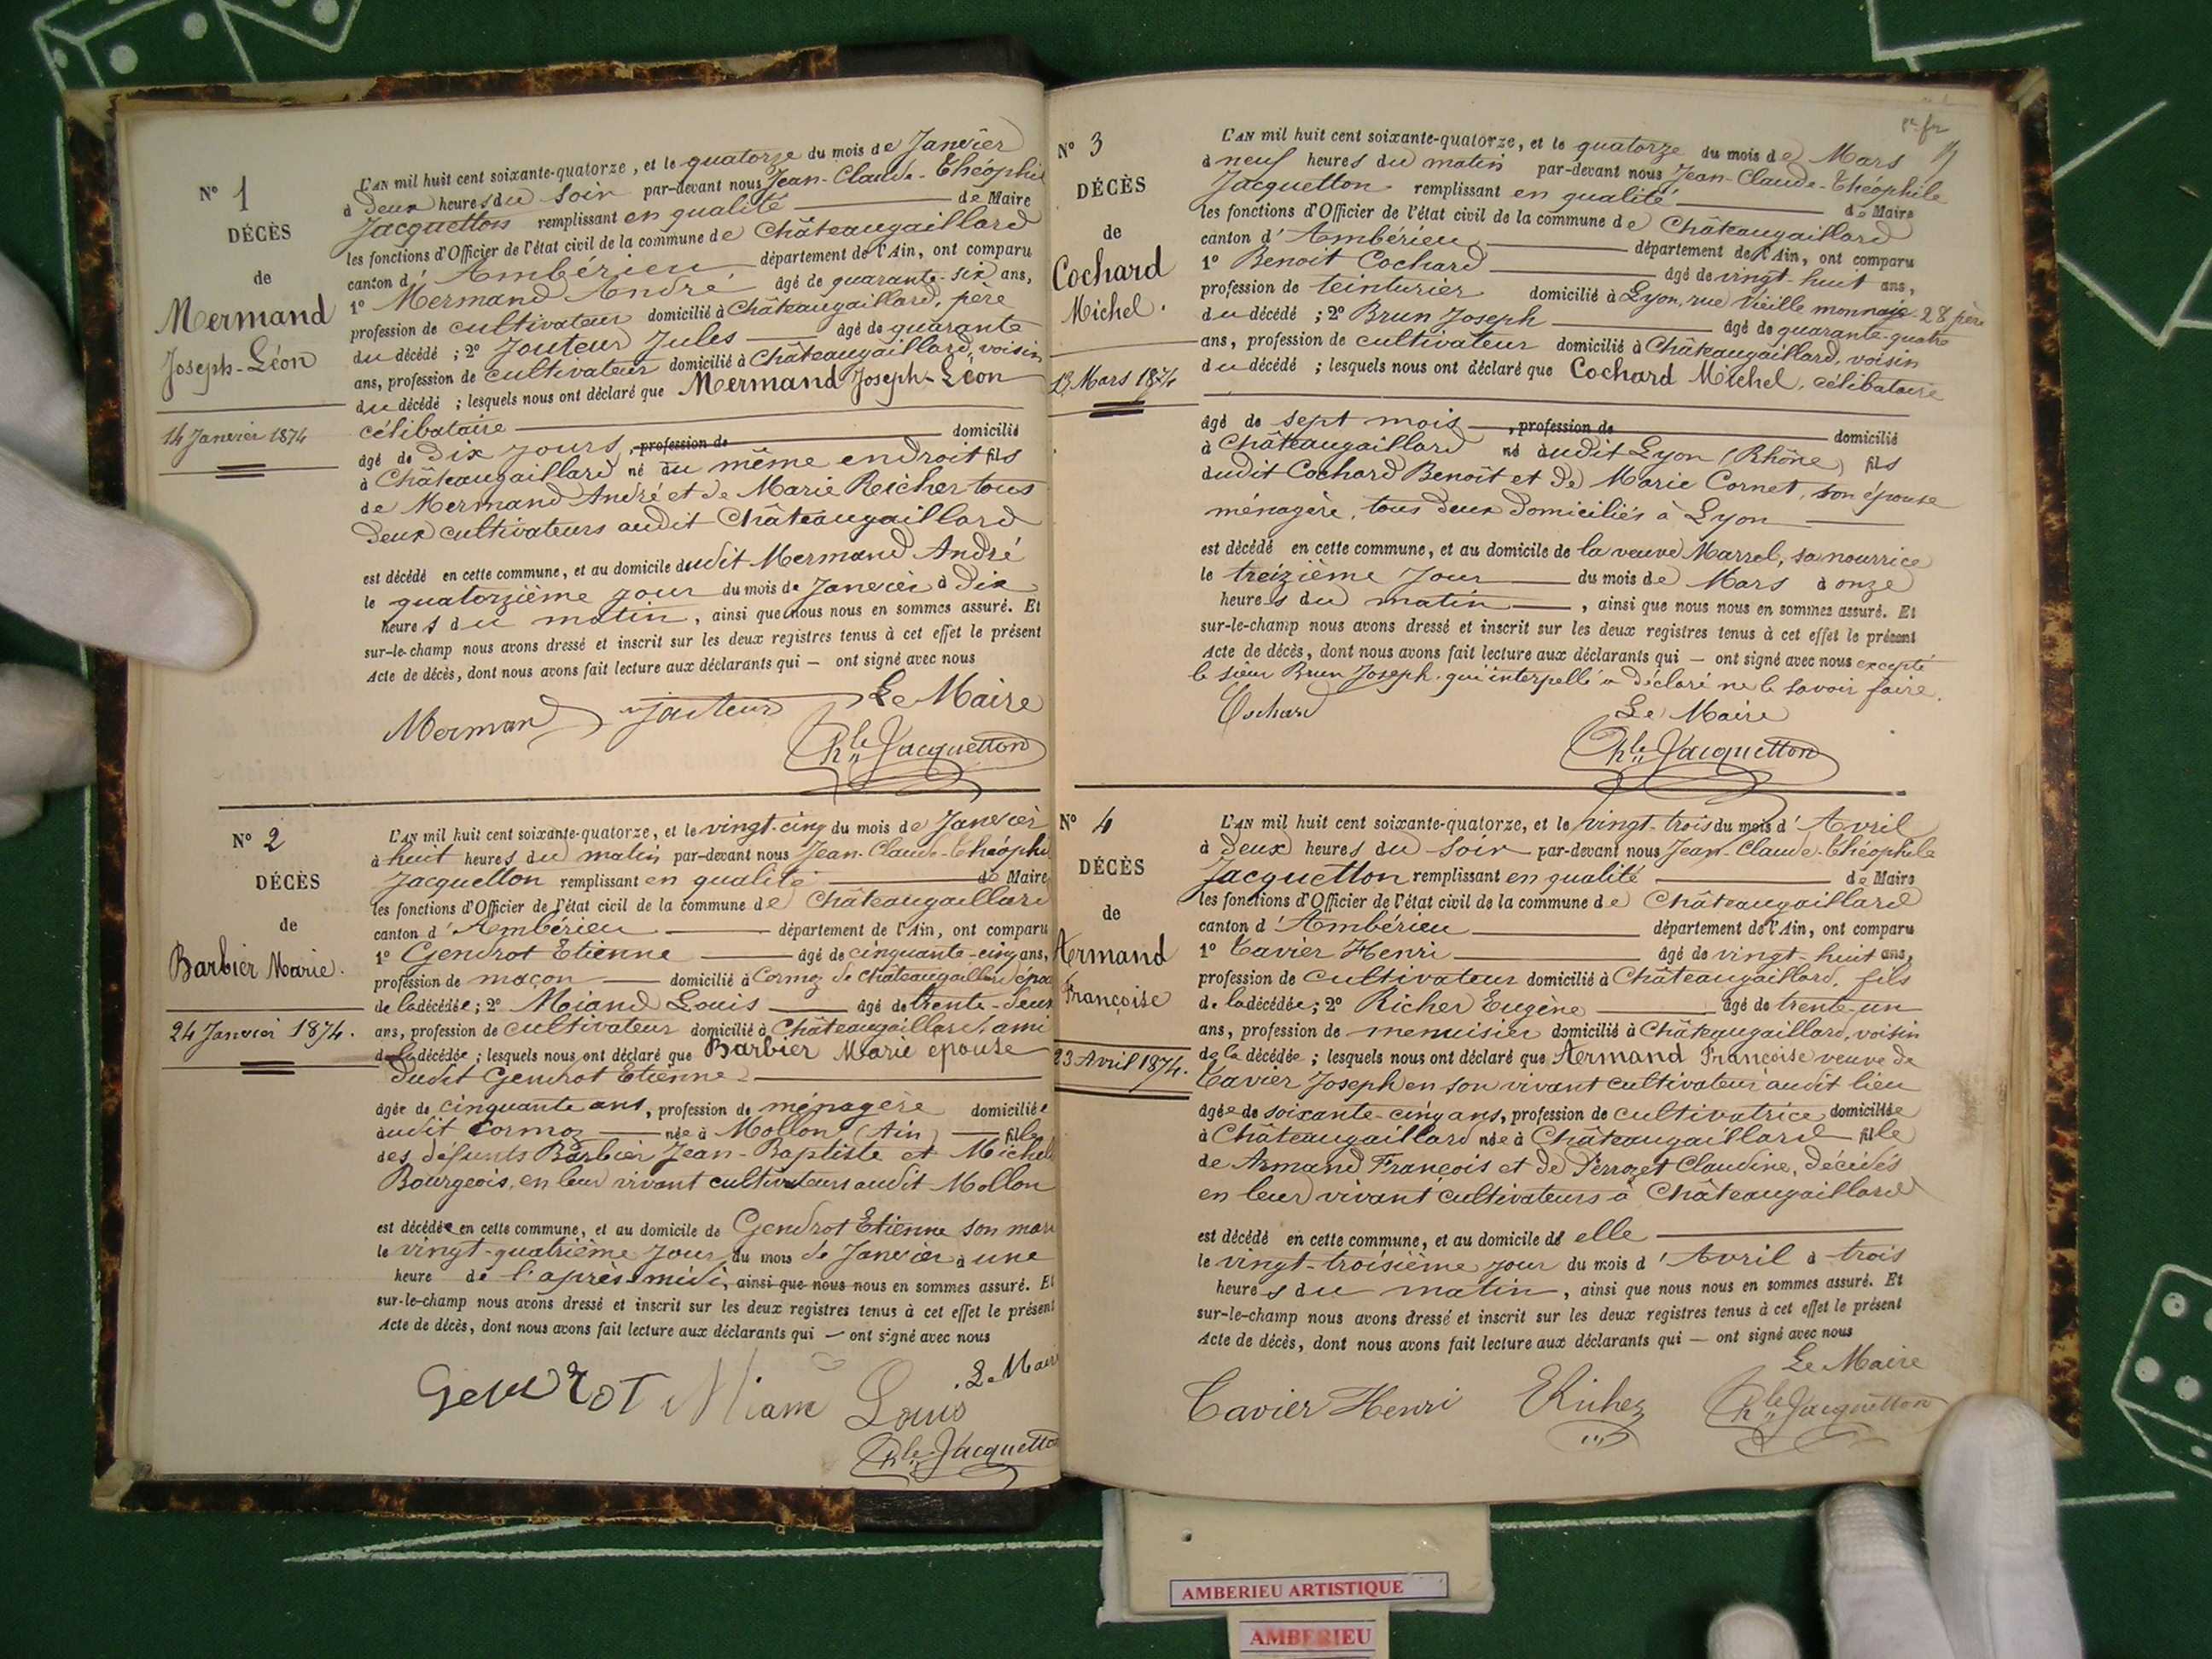 N° 1
DÉCÈS
de
Mermand
Joseph-Léon
14 Janvier 1874
L'AN mil huit cent soixante-quatorze, et le quatorze du mois de Janvier
à deux heures du soir par-devant nous Jean-Claude-Théophi
Jacquetton remplissant en qualité de Maire
les fonctions d'Officier de l'état civil de la commune de Châteaugaillard
canton d'Ambérieu, département de l'Ain, ont comparu
1° Mermand André âgé de quarante-six ans,
profession de cultivateur domicilié à Châteaugaillard, père
du décédé ; 2° Jouteur Jules âgé de quarante
ans, profession de cultivateur domicilié à Châteaugaillard, voisin
du décédé ; lesquels nous ont déclaré que Mermand Joseph-Léon
célibataire
âgé de dix jours, profession de domicilié
à Châteaugaillard né au même endroit fils
de Mermand André et de Marie Reicher tous
deux cultivateurs audit Châteaugaillard
est décédé en cette commune, et au domicile dudit Mermand André
le quatorzième jour du mois de Janvier à dix
heures du matin, ainsi que nous nous en sommes assuré. Et
sur-le-champ nous avons dressé et inscrit sur les deux registres tenus à cet effet le présent
Acte de décès, dont nous avons fait lecture aux déclarants qui — ont signé avec nous
Le Maire
Mermand Jouteur
Jacquetton
N° 2
DÉCÈS
de
Barbier Marie.
24 Janvier 1874.
L'AN mil huit cent soixante-quatorze, et le vingt-cinq du mois de Janvier
à huit heures du matin par-devant nous Jean-Claude-Théophi
Jacquetton remplissant en qualité de Maire
les fonctions d'Officier de l'état civil de la commune de Châteaugaillard
canton d'Ambérieu département de l'Ain, ont comparu
1° Gendrot Etienne âgé de cinquante-cinq ans,
profession de maçon domicilié à Cormoz de Châteaugaillard épou
de la décédée; 2° Miand Louis âgé de trente-deux
ans, profession de cultivateur domicilié à Châteaugaillard, ami
de la décédée ; lesquels nous ont déclaré que Barbier Marie épouse
dudit Gendrot Etienne
âgée de cinquante ans, profession de ménagère domiciliée
audit Cormoz née à Mollon (Ain) fille
des défunts Barbier Jean-Baptiste et Michel
Bourgeois, en leur vivant cultivateurs audit Mollon
est décédée en cette commune, et au domicile de Gendrot Etienne son mari
le vingt-quatrième jour du mois de Janvier à une
heure de l'après-midi, ainsi que nous nous en sommes assuré. Et
sur-le-champ nous avons dressé et inscrit sur les deux registres tenus à cet effet le présent
Acte de décès, dont nous avons fait lecture aux déclarants qui — ont signé avec nous
Le Maire
Gendrot Miand Louis
Jacquetton
N° 3
DÉCÈS
de
Cochard
Michel.
13 Mars 1874
L'AN mil huit cent soixante-quatorze, et le quatorze du mois de Mars
à neuf heures du matin par-devant nous Jean-Claude-Théophile
Jacquetton remplissant en qualité de Maire
les fonctions d'Officier de l'état civil de la commune de Châteaugaillard
canton d'Ambérieu département de l'Ain, ont comparu
1° Benoit Cochard âgé de vingt-huit ans,
profession de teinturier domicilié à Lyon, rue Vieille monnaie 28 père
du décédé ; 2° Brun Joseph âgé de quarante-quatre
ans, profession de cultivateur domicilié à Châteaugaillard, voisin
du décédé ; lesquels nous ont déclaré que Cochard Michel, célibataire
âgé de sept mois, profession de domicilié
à Châteaugaillard né audit Lyon (Rhône) fils
dudit Cochard Benoît et de Marie Cornet, son épouse
ménagère, tous deux domiciliés à Lyon
est décédé en cette commune, et au domicile de la veuve Marrel, sa nourrice
le treizième jour du mois de Mars à onze
heures du matin, ainsi que nous nous en sommes assuré. Et
sur-le-champ nous avons dressé et inscrit sur les deux registres tenus à cet effet le présent
Acte de décès, dont nous avons fait lecture aux déclarants qui — ont signé avec nous excepté
le sieur Brun Joseph qui interpellé a déclaré ne le savoir faire.
Cochard Le Maire
Jacquetton
N° 4
DÉCÈS
de
Armand
Françoise
23 Avril 1874.
L'AN mil huit cent soixante-quatorze, et le vingt-trois du mois d'Avril
à deux heures du soir par-devant nous Jean-Claude-Théophile
Jacquetton remplissant en qualité de Maire
les fonctions d'Officier de l'état civil de la commune de Châteaugaillard
canton d'Ambérieu département de l'Ain, ont comparu
1° Tavier Henri âgé de vingt-huit ans,
profession de cultivateur domicilié à Châteaugaillard, fils
de la décédée ; 2° Richer Eugène âgé de trente-un
ans, profession de menuisier domicilié à Châteaugaillard, voisin
de la décédée ; lesquels nous ont déclaré que Armand Françoise veuve de
Tavier Joseph en son vivant cultivateur audit lieu
âgée de soixante-cinq ans, profession de cultivatrice domiciliée
à Châteaugaillard née à Châteaugaillard fille
de Armand François et de Perrozet Claudine, décédés
en leur vivant cultivateurs à Châteaugaillard
est décédé en cette commune, et au domicile de elle
le vingt-troisième jour du mois d'Avril à trois
heures du matin, ainsi que nous nous en sommes assuré. Et
sur-le-champ nous avons dressé et inscrit sur les deux registres tenus à cet effet le présent
Acte de décès, dont nous avons fait lecture aux déclarants qui — ont signé avec nous
Le Maire
Tavier Henri ERicher Jacquetton
AMBERIEU ARTISTIQUE
AMBERIEU